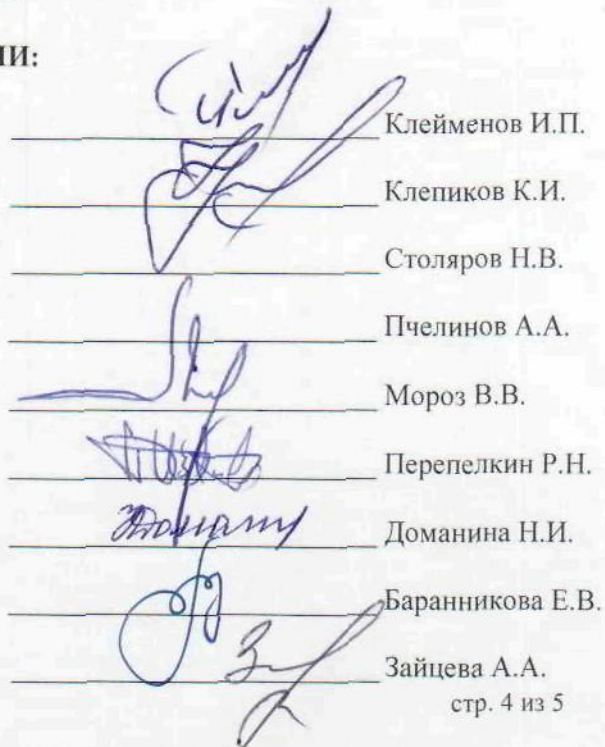 ИИ:
Клейменов И.П.
Клепиков К.И.
Столяров Н.В.
Пчелинов А.А.
Мороз В.В.
Перепелкин Р.Н.
Доманина Н.И.
Баранникова Е.В.
Зайцева А.А.
стр. 4 из 5